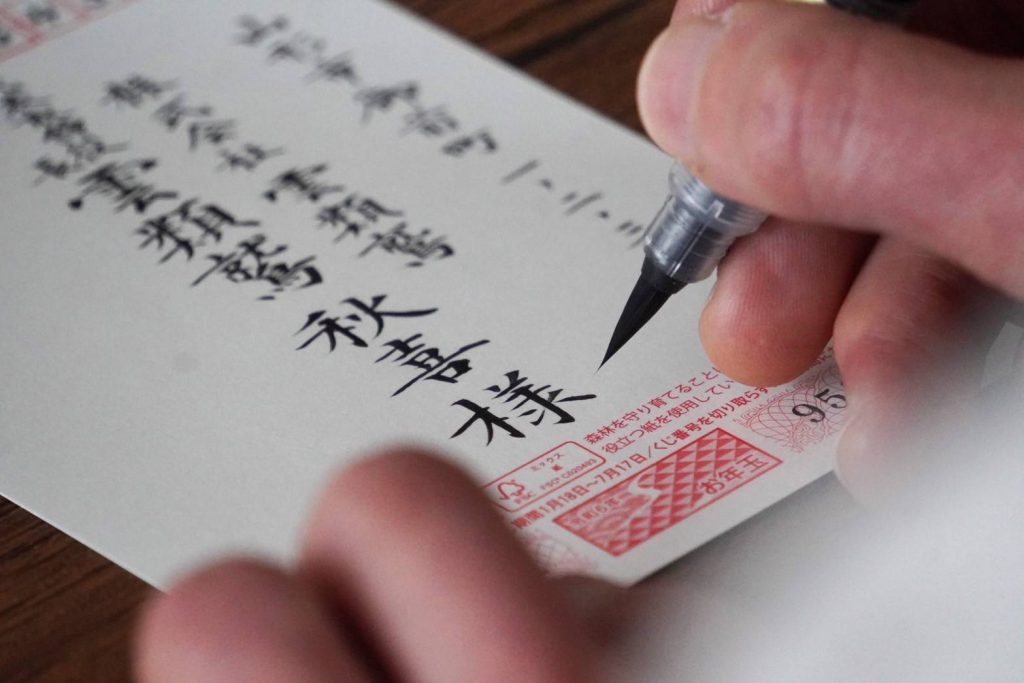 山形市
町一、二、三
株式会社 雲類鷲
雲類鷲 秋喜 様
森林を守り育てること
役立つ紙を使用してい
ミックス
紙
FSC
FSC® C020493
期間1月18日〜7月17日/くじ番号を切り取らず
令和6年
お年玉
95